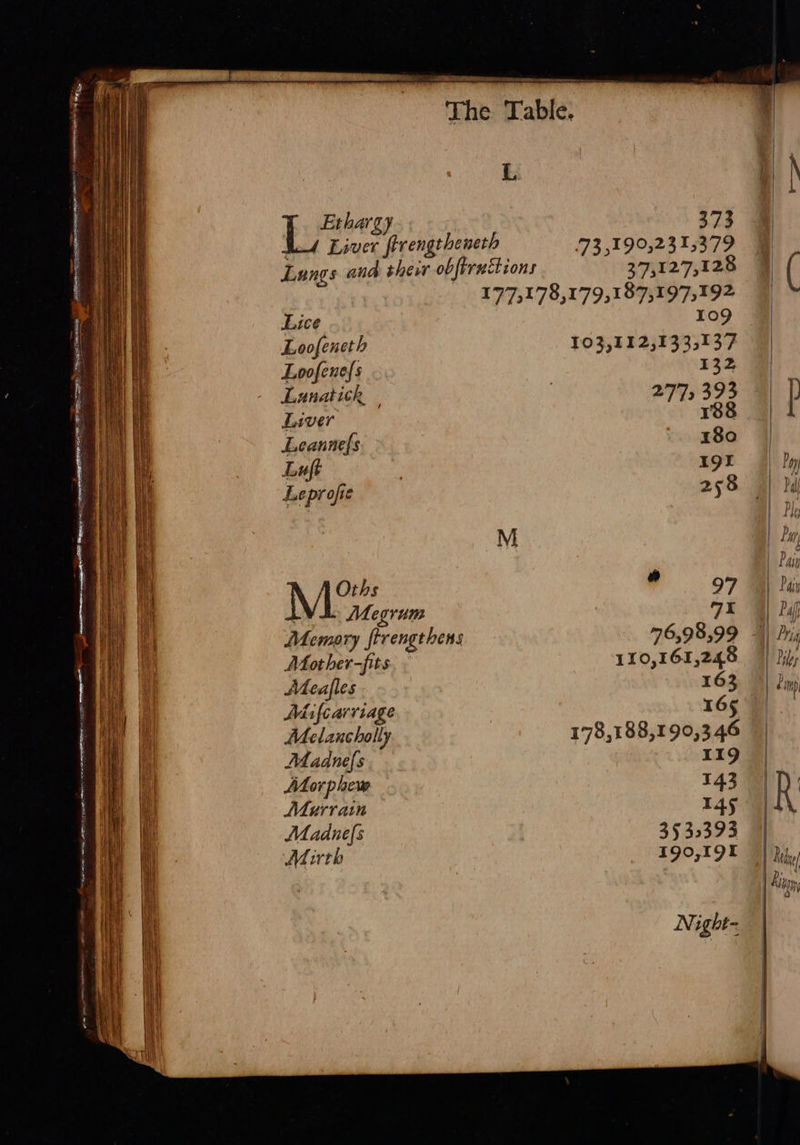 The Table.
L
LEthargy 373
Liver ſtrengtheneth 73,190,231,379
Lungs and their obſtructions 37,127,128
177,178,179,187,197,192
Lice 109
Looſeneth 103,112,133,137
Looſeneſs 132
Lunatick 277, 393
Liver 188
Leanneſs 180
Luſt 191
Leproſie 258
M
MOths 97
Megrum 71
Memory ſtrengthens 76,98,99
Mother-fits 110,161,248
Meaſles 163
Miſcarriage 165
Melancholly 178,188,190,346
Madneſs 119
Morphew 143
Murrain 145
Madneſs 353,393
Mirth 190,191
Night-